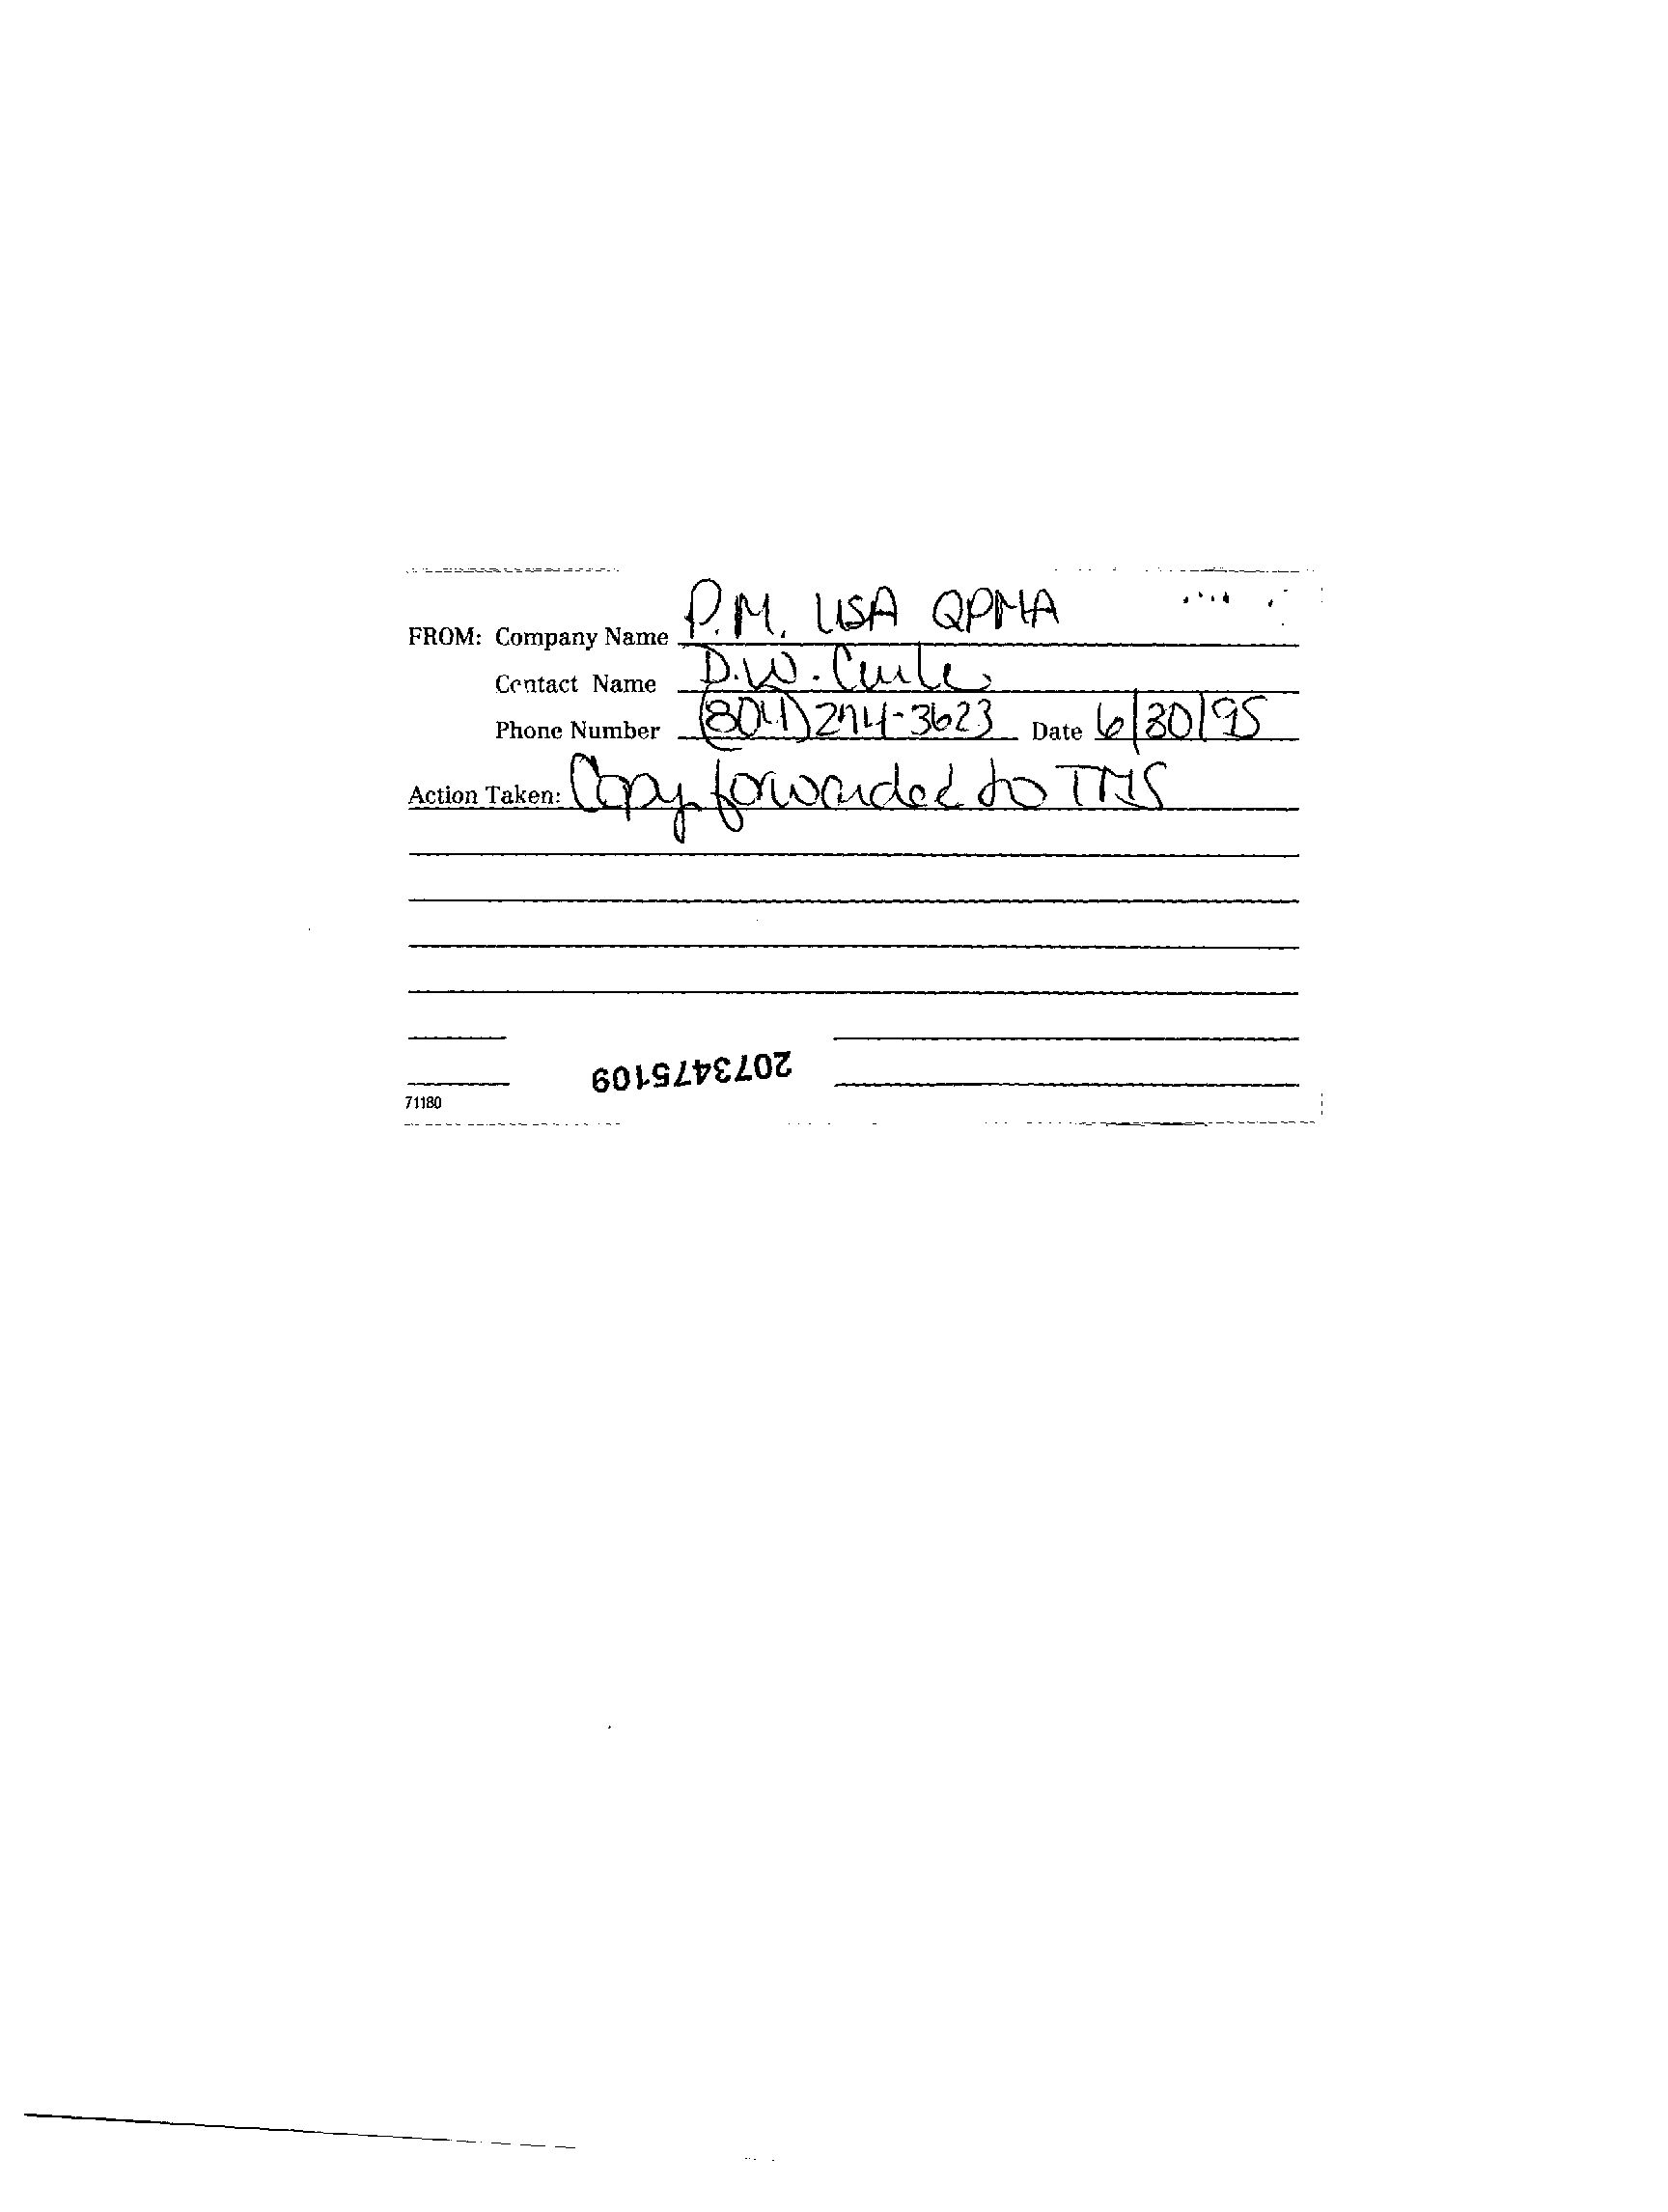 FROM: Company Name P.M. USA QPMA
Contact Name D.W.
Phone Number (804) 274-3623 Date 6/30/95
Action Taken: Copy forwarded to
2073475109
71180